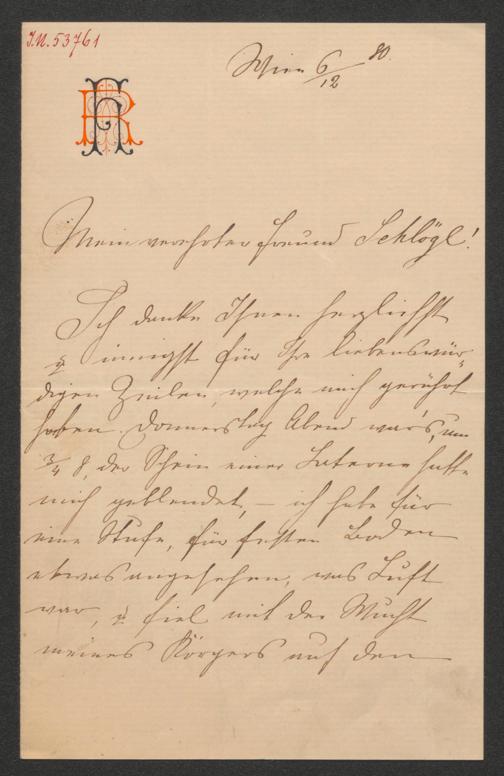 I.N. 53761
Wien 6/12 80.
Mein verehrter Freund Schlögl!
Ich danke Ihnen herzlichst
u. innigst für Ihre liebenswür-
digen Zeilen, welche mich gerührt
haben. Donnerstag Abend war's, um
3/4 8, der Schein einer Laterne hatte
mich geblendet, – ich habe für
eine Stufe, für festen Boden
etwas angesehen, was Luft
war, u. fiel mit der Wucht
meines Körpers auf den